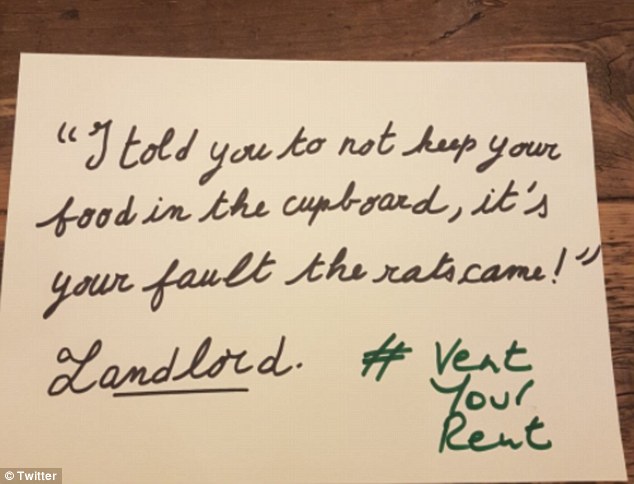 “I told you to not keep your
food in the cupboard, it's
your fault the rats came!”
Landlord.
# Vent
Your
Rent
© Twitter